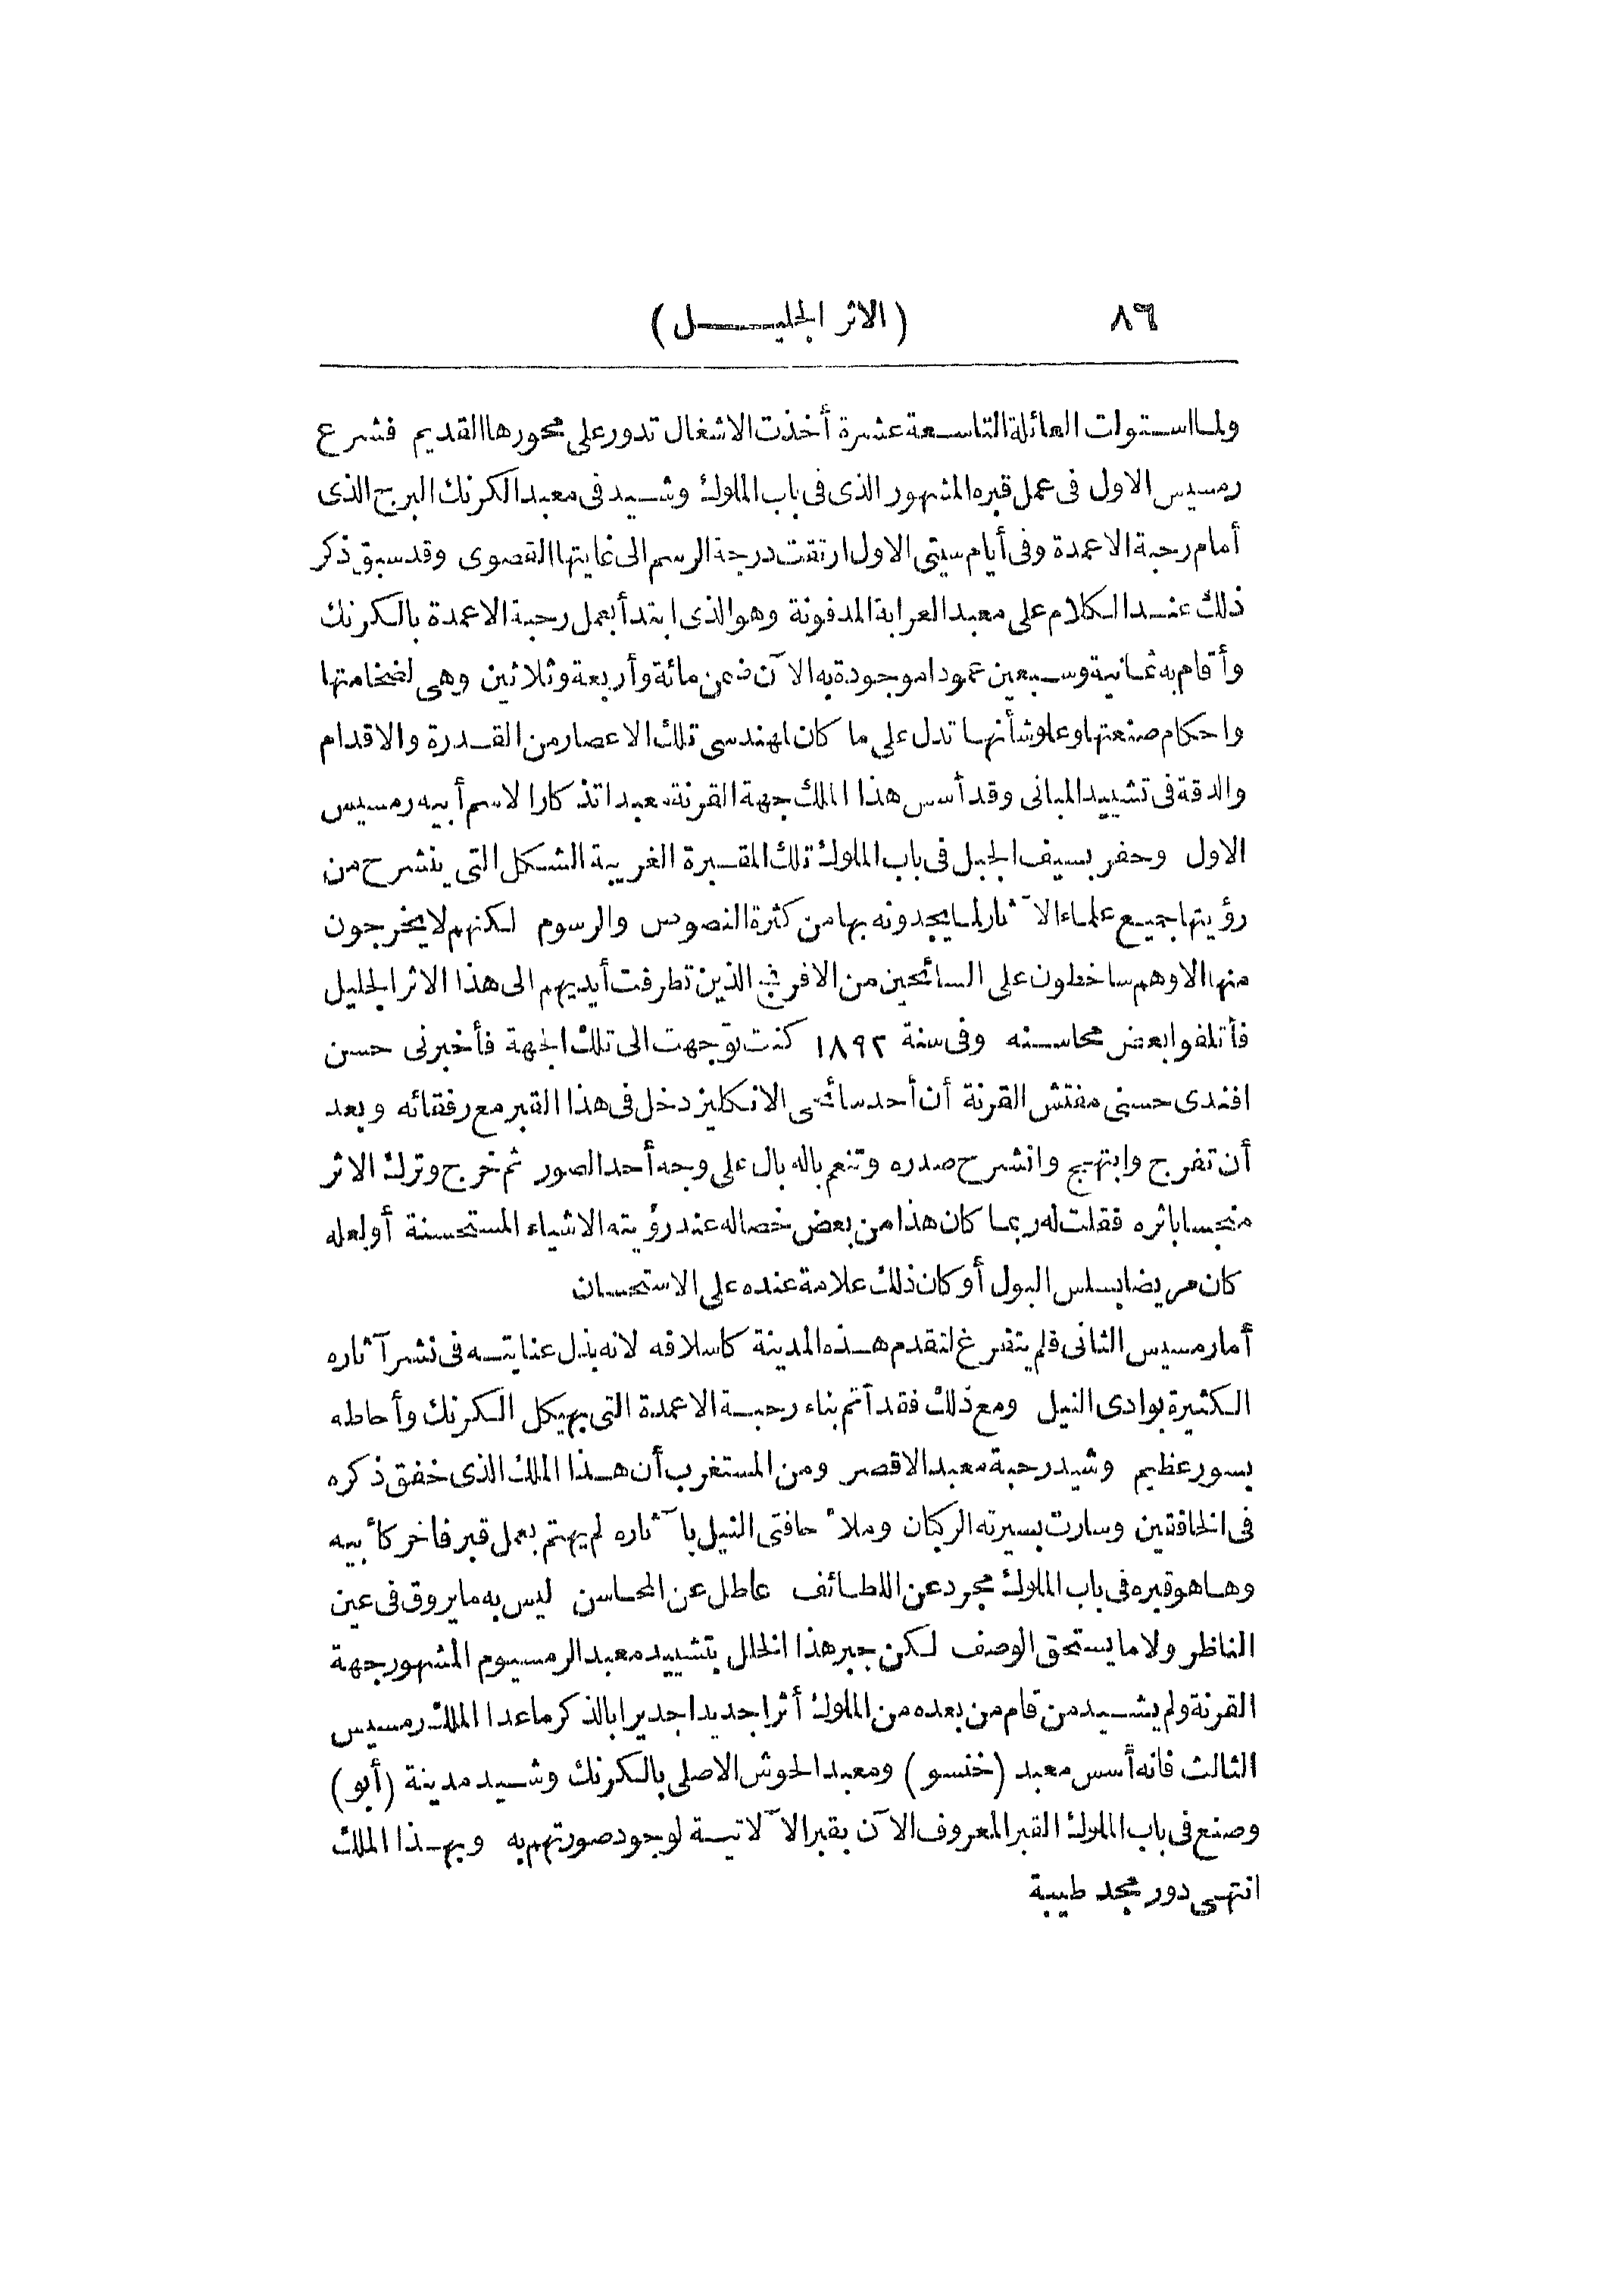 ٨٦ (الاثر الجليل)
ولما استوات العائلة التاسعة عشرة أخذت الاشغال تدور على محورها القديم فشرع
رمسيس الاول فى عمل قبره المشهور الذى فى باب الملوك وشيد فى معبد الكرنك البرج الذى
أمام رحبة الاعمدة وفى أيام سيتى الاول ارتقت درجة الرسم الى غايتها القصوى وقد سبق ذكر
ذلك عند الكلام على معبد العرابة المدفونة وهو الذى ابتدأ بعمل رحبة الاعمدة بالكرنك
وأقام به ثمانية وسبعين عمودا موجودة به الآن ضمن مائة وأربعة وثلاثين وهى لضخامتها
واحكام صنعتها وعلو شأنها تدل على ما كان لهندسى تلك الاعصار من القدرة والاقدام
والدقة فى تشييد المبانى وقد أسس هذا الملك جهة القرنة معبدا تذكارا لاسم أبيه رمسيس
الاول وحفر بسيف الجبل فى باب الملوك تلك المقبرة الغريبة الشكل التى ينشرح من
رؤيتها جميع علماء الآثار لما يجدونه بها من كثرة النصوص والرسوم لكنهم لا يخرجون
منها الا وهم ساخطون على السائحين من الافرنج الذين تطرفت أيديهم الى هذا الاثر الجليل
فأتلفوا بعض محاسنه وفى سنة ١٨٩٢ كنت توّجهت الى تلك الجهة فأخبرنى حسن
افندى حسنى مفتش القرنة أن أحد سائحى الانكليز دخل فى هذا القبر مع رفقائه وبعد
أن تفرج وابتهج وانشرح صدره وتنعم باله بال على وجه أحد الصور ثم خرج وترك الاثر
منجسا باثره فقلت له ربما كان هذا من بعض خصاله عند رؤيته الاشياء المستحسنة أو لعله
كان مريضا بسلس البول أو كان ذلك علامة عنده على الاستحسان
أما رمسيس الثانى فلم يتفرغ لتقدم هذه المدينة كاسلافه لانه بذل عنايته فى نشر آثاره
الكثيرة بوادى النيل ومع ذلك فقد أتم بناء رحبة الاعمدة التى بهيكل الكرنك وأحاطه
بسور عظيم وشيد رحبة معبد الاقصر ومن المستغرب أن هذا الملك الذى خفق ذكره
فى الخافقين وسارت بسيرته الركبان وملأ حافتى النيل بآثاره لم يهتم بعمل قبر فاخر كأبيه
وها هو قبره فى باب الملوك مجرد عن اللطائف عاطل عن المحاسن ليس به ما يروق فى عين
الناظر ولا ما يستحق الوصف لكن جبر هذا الخلل بتشييد معبد الرمسيوم المشهور جهة
القرنة ولم يشيد من قام من بعده من الملوك أثرا جديدا جديرا بالذكر ماعدا الملك رمسيس
الثالث فانه أسس معبد (خنسو) ومعبد الحوش الاصلى بالكرنك وشيد مدينة (أبو)
وصنع فى باب الملوك القبر المعروف الآن بقبر الآلاتية لوجود صورتهم به وبهذا الملك
انتهى دور مجد طيبة